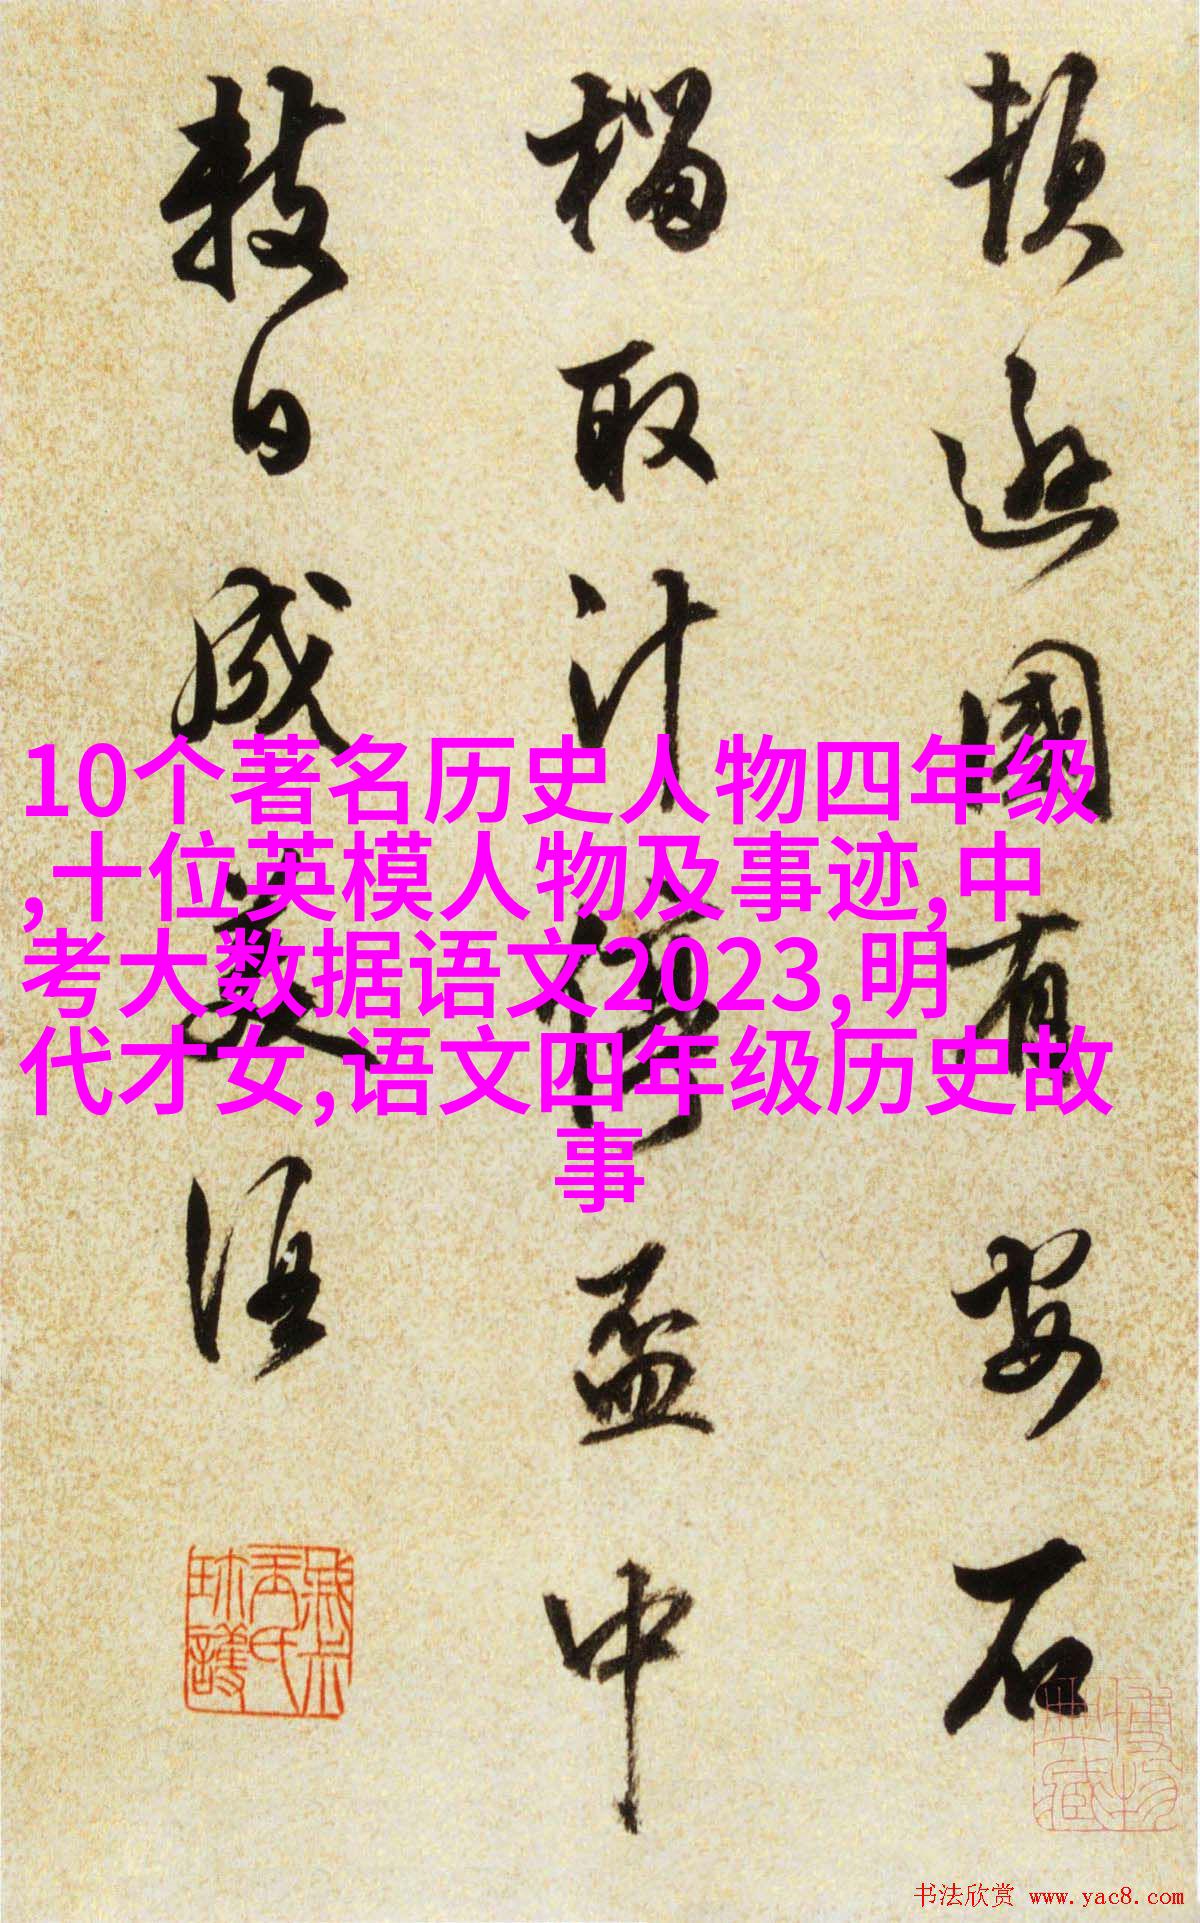 頓遜國有安石
榴取汁停盃中
數日成美酒
10个著名历史人物四年级
,十位英模人物及事迹,中
考大数据语文2023,明
代才女,语文四年级历史故
事
书法欣赏 www.yac8.com